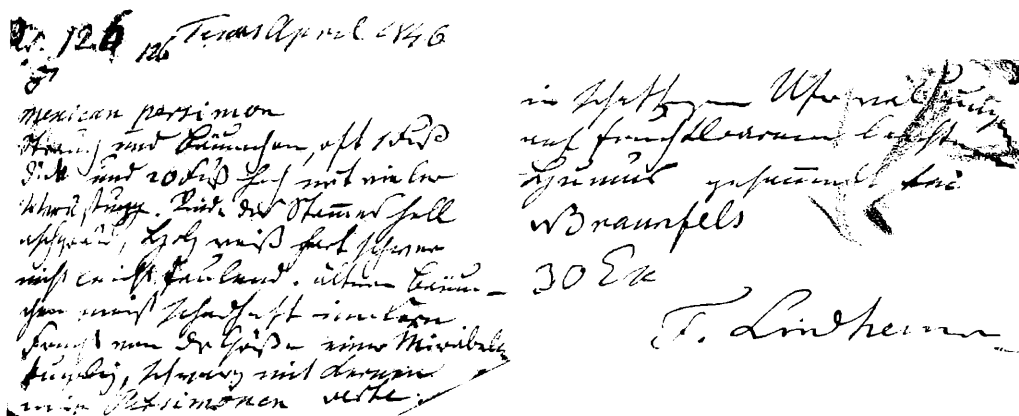 No. 126 126 Texas April 1846
mexican persimon
Strauch und Bäumchen, oft 1 Fuß
dick und 20 Fuß hoch mit vieler
Rinde des Stammes hell
aschgrau, Holz weiß hart schwer
nicht leicht faulend. ältere Bäum-
chen meist schadhaft im Kern
Frucht von der Größe einer Mirabelle
kuglig, schwarz mit Kernen
wie Persimonen
in schattigen Uferwaldungen
auf fruchtbarem leichten
Humus gesammelt bei
Braunfels
30 Ex
F. Lindheimer